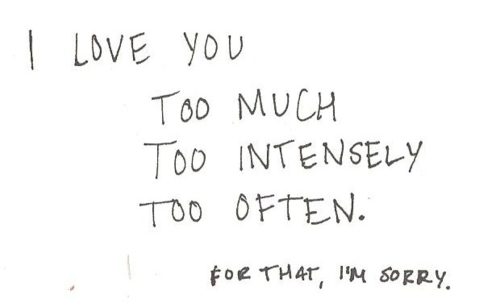 I LOVE YOU
TOO MUCH
TOO INTENSELY
TOO OFTEN.
FOR THAT, I'M SORRY.